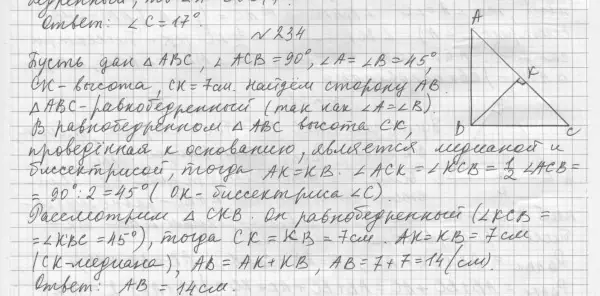 Ответ: ∠C = 17°.
№ 234
Пусть дан △ABC, ∠ACB = 90°, ∠A = ∠B = 45°,
CK - высота, CK = 7см. Найдём сторону AB.
△ABC - равнобедренный (так как ∠A = ∠B).
В равнобедренном △ABC высота CK,
проведённая к основанию, является медианой и
биссектрисой, тогда AK = KB. ∠ACK = ∠KCB = 1/2 ∠ACB =
= 90° : 2 = 45° (OK - биссектриса ∠C).
Рассмотрим △CKB. Он равнобедренный (∠KCB =
= ∠KBC = 45°), тогда CK = KB = 7см. AK = KB = 7см
(CK - медиана), AB = AK + KB, AB = 7 + 7 = 14 (см)
Ответ: AB = 14см.
A
K
B
C